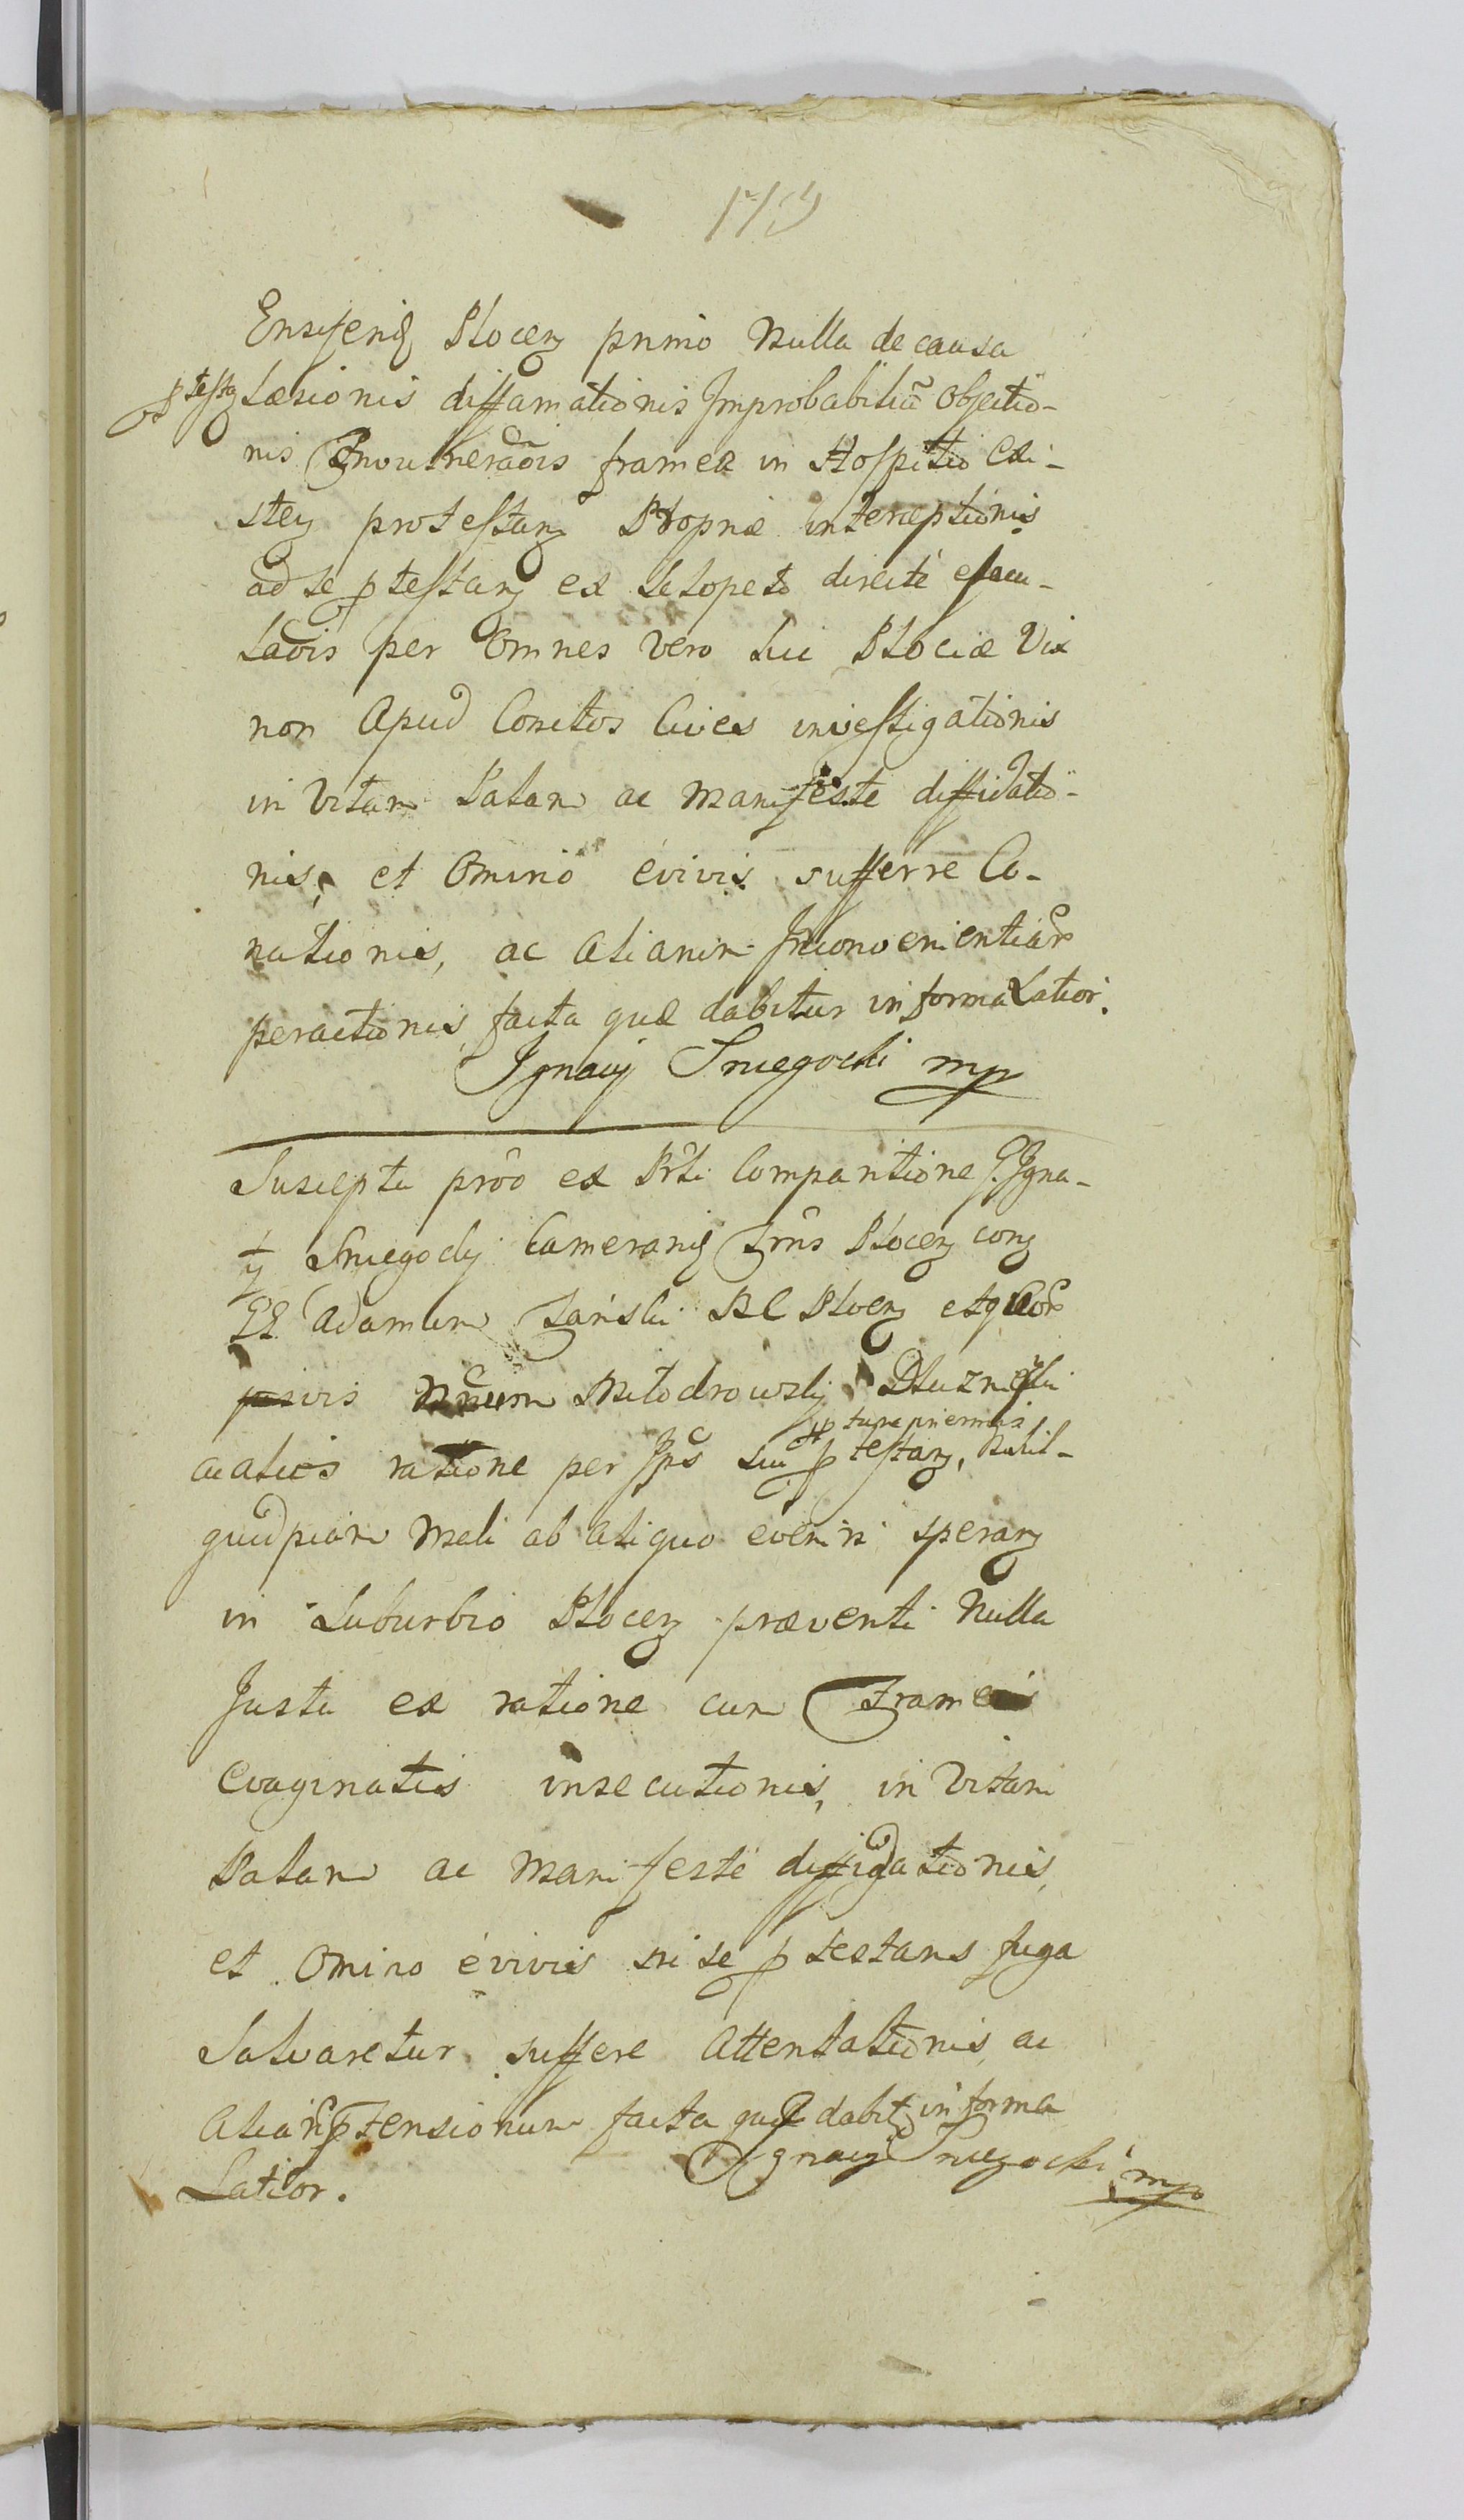 179
Ensiferiq Plocen primo Nulla de causa
ptestan Læsionis diffamationis Improbabiliũ Objectio-
nis Invulneraõis frameæ in Hospitio Exi-
sten protestan Propriæ interceptionis
ad se ptestan ex Sclopeto directe ejacu-
laõis per Omnes vero Sui Plociæ Vix
non Apud Conctos Cives investigationis
in Vitam Palam ac Manifeste diffidatio-
nis, et Omnino e vivis sufferre Co-
nationis, ac Aliarum Inconvenientiar
peractionis facta quæ dabitur in forma Latior.
Ignacy Sniegocki mp
Suscepta prõo ex Prti Comparitione G. Igna-
ty Sniegocky Camerariq Trñs Plocen con
GG Adamum Zański BC Plocen etq
Milodrowsky Dluzniesski
ac alios ratione per Ips Sui ptestan, Nihil-
tunc priemis
quidpiam Mali ab aliquo eveniri speran
in Suburbio Plocen præventi Nulla
Justa ex ratione cum Frameis
Evaginatis insecutionis, in Vitam
Palam ac Manifeste diffidationis,
et Omino e vivis ni se ptestans fuga
Salvaretur suffere Attentationis, ac
Aliar ptensionum facta quæ dabit in forma
Latior.
Ignacy Sniegocki mp